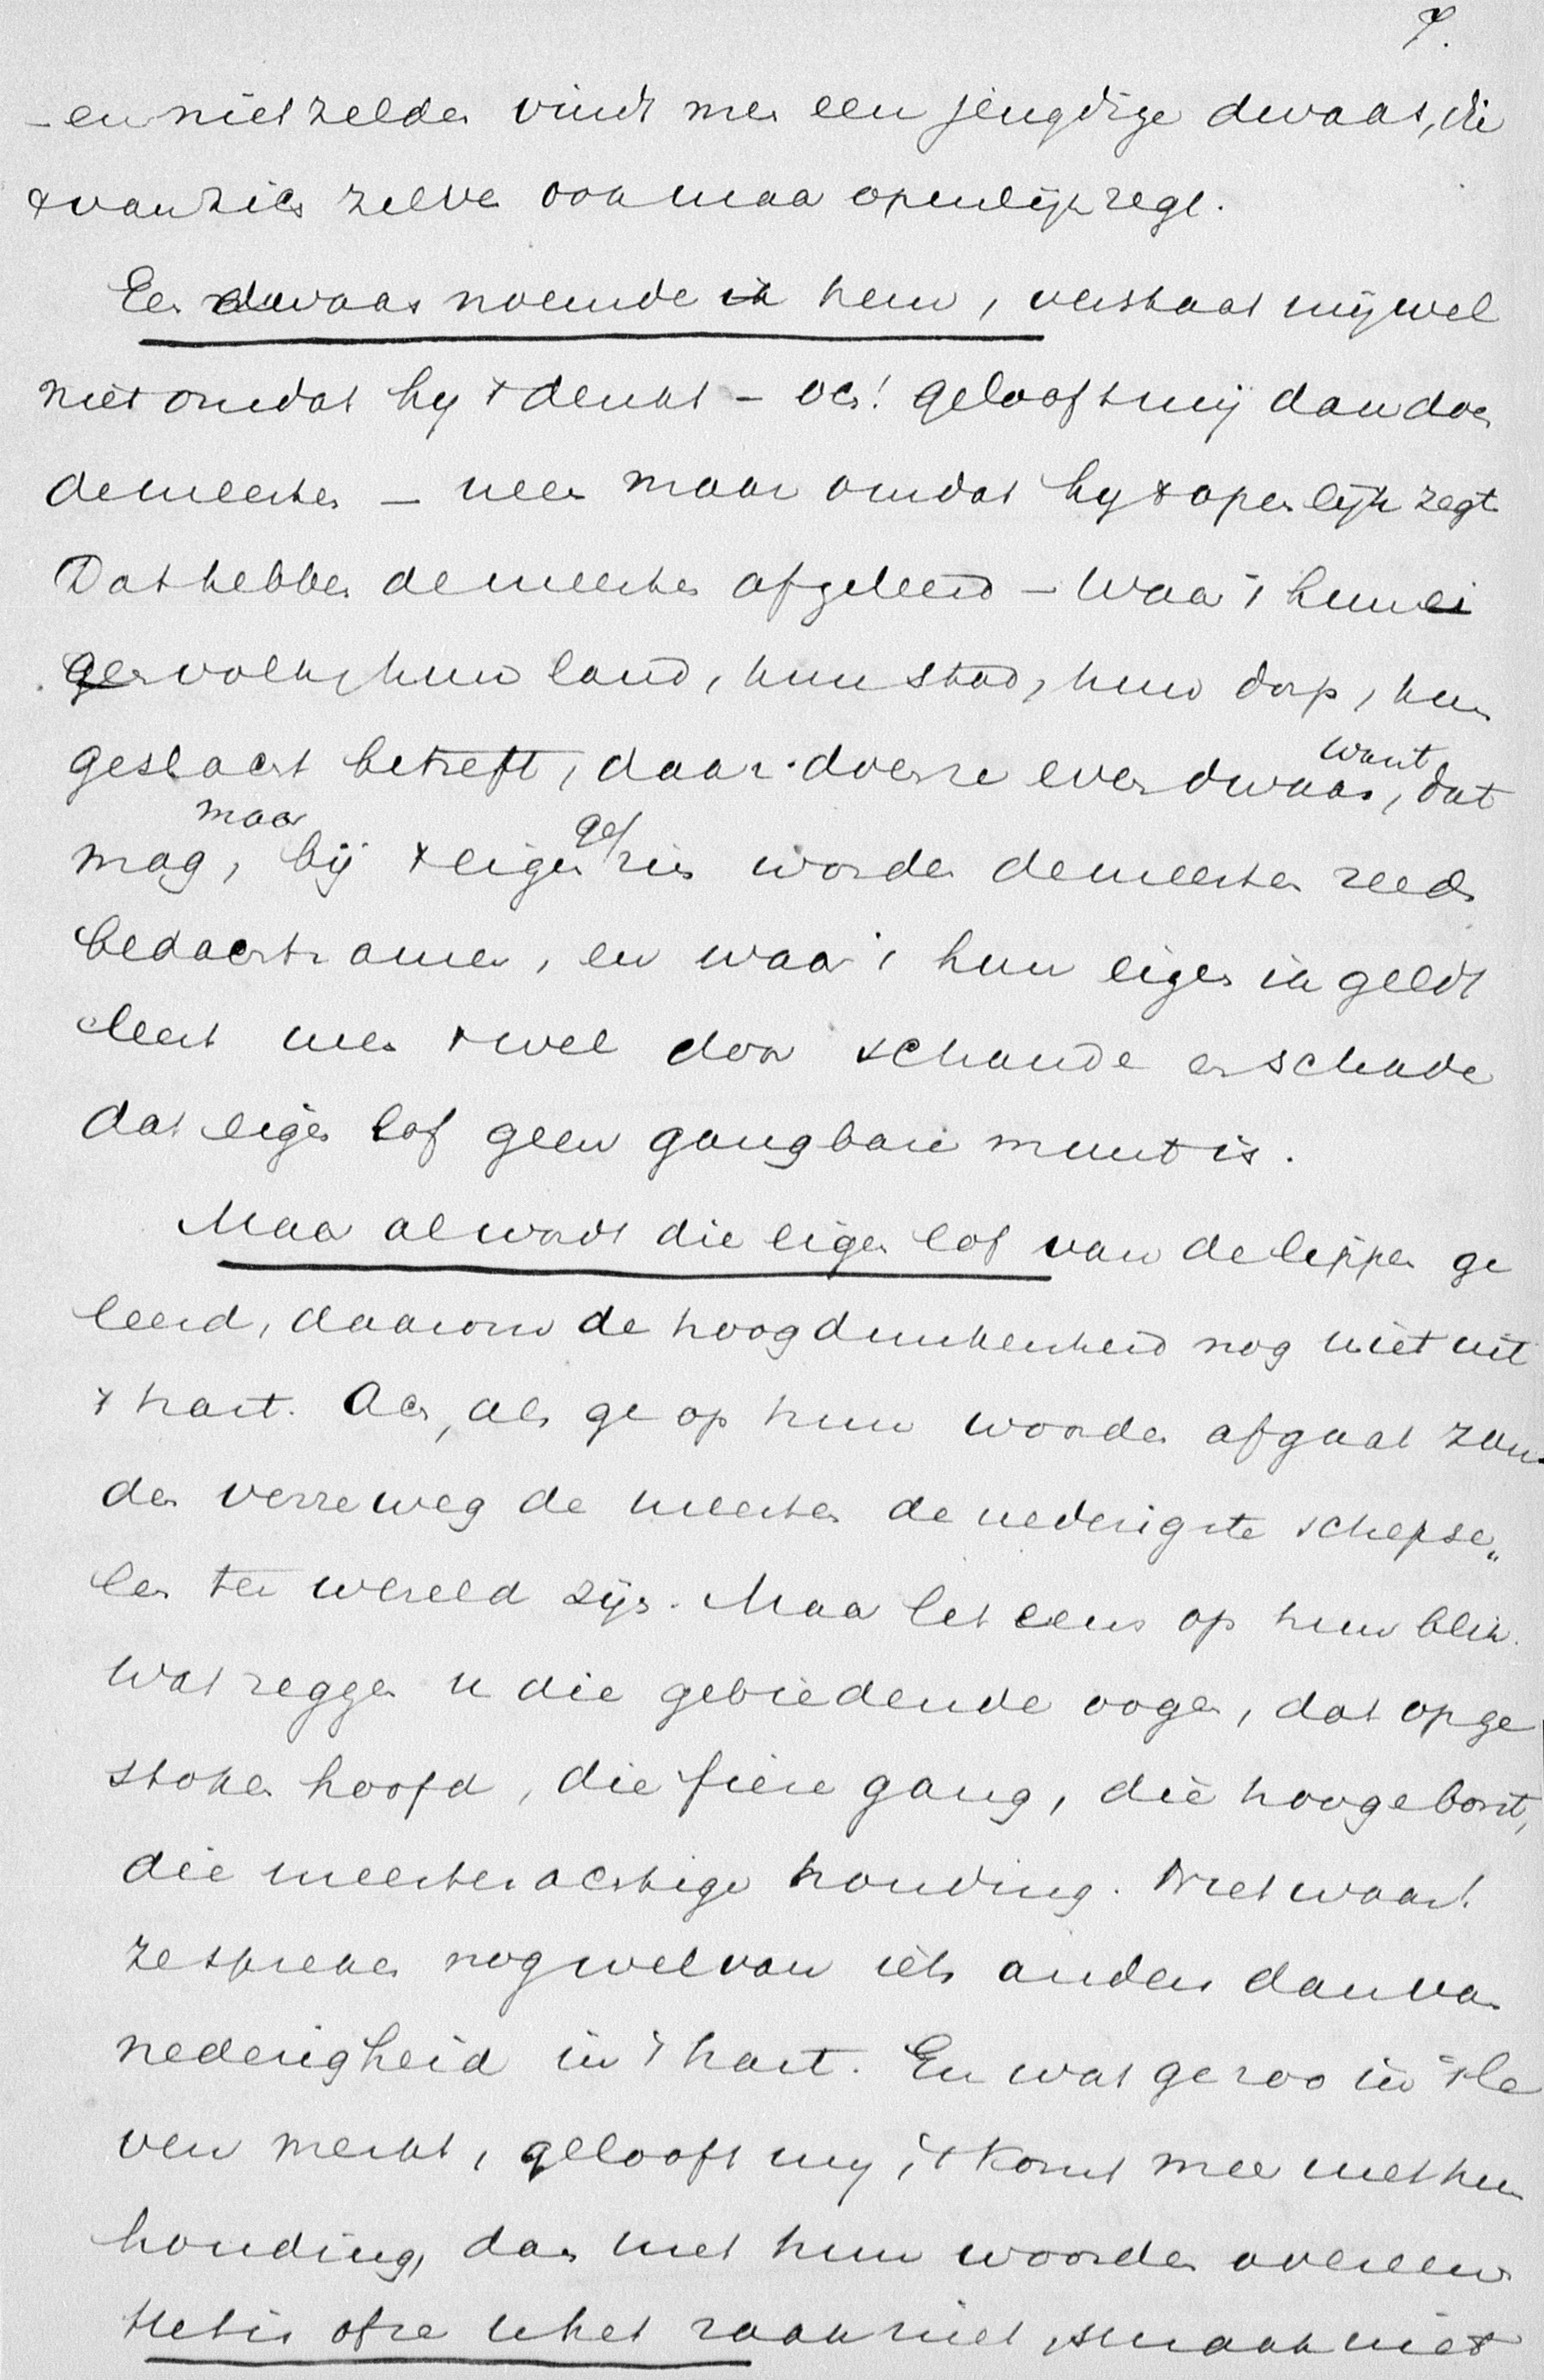 7.
- en niet zelden vindt men een jeugdige dwaas, die
't van zich zelven ook maar openlijk zegt.
Een dwaas noemde ik hem, verstaat mij wel
niet omdat hij 't denkt - och! gelooft mij dan doen
de meesten - neen maar omdat hij 't openlijk zegt
Dat hebben de meesten afgeleerd - Waar 't hun ei
gen volk, hun land, hun stad, hun dorp, hun
geslacht betreft, daar doen ze even dwaas, want dat
mag, maar bij 't eigen gezin worden de meesten reeds
bedachtzamer, en waar 't hun eigen ik geldt
leert men 't wel door schande en schade
dat eigen lof geen gangbare munt is.
Maar al wordt die eigen lof van de lippen ge
leerd, daarom de hoogdunkenheid nog niet uit
't hart. Ach, als ge op hun woorden afgaat zou
den verreweg de meesten de nederigste schepse„
len ter wereld zijn. Maar let eens op hun blik.
Wat zeggen u die gebiedende oogen, dat opge
stoken hoofd, die fiere gang, die hooge borst,
die meesterachtige houding. Niet waar!
ze spreken nog wel van iets anders dan van
nederigheid in 't hart. En wat ge zoo in 't le
ven merkt, gelooft mij, 't komt mee met hun
houding, dan met hun woorden overeen
Het is of ze u het raak niet, smaak niet